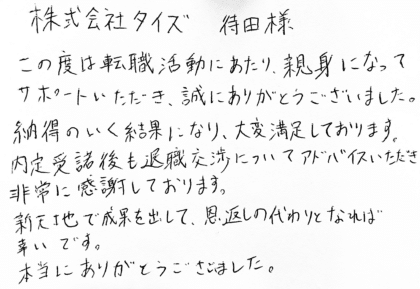 株式会社タイズ 待田様
この度は転職活動にあたり、親身になって
サポートいただき、誠にありがとうございました。
納得のいく結果になり、大変満足しております。
内定受諾後も退職交渉についてアドバイスいただき
非常に感謝しております。
新天地で成果を出して、恩返しの代わりとなれば
幸いです。
本当にありがとうございました。